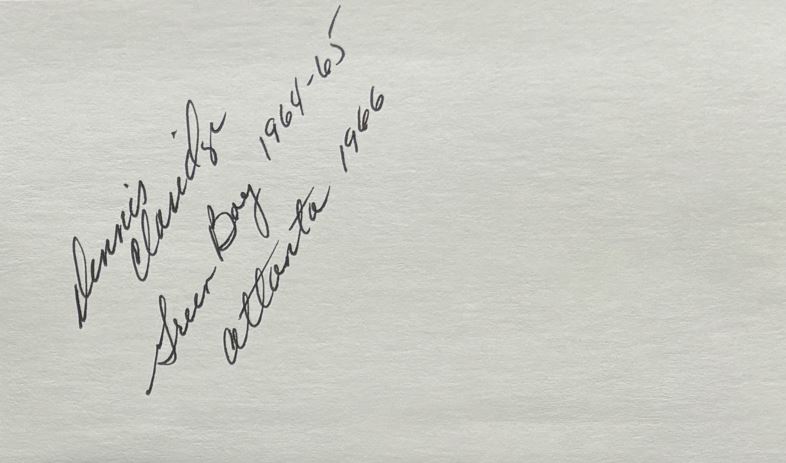 Dennis
Claridge
Green Bay 1964-65
Atlanta 1966